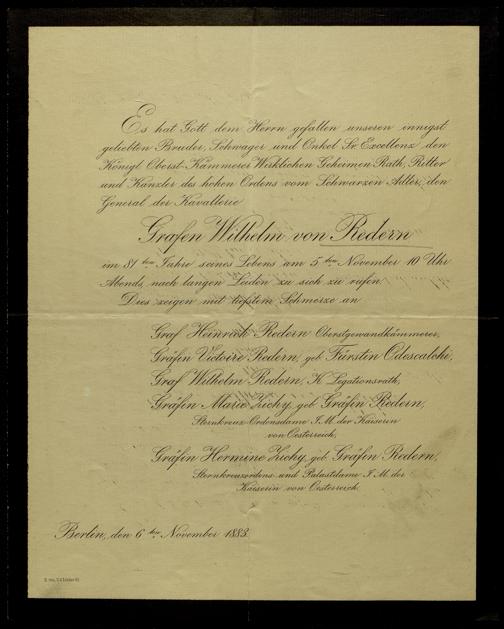 Es hat Gott dem Herrn gefallen unseren innigst
geliebten Bruder, Schwager und Onkel Sr. Excellenz den
Königl. Oberst-Kämmerer Wirklichen Geheimen Rath, Ritter
und Kanzler des hohen Ordens vom Schwarzen Adler, den
General der Kavallerie
Grafen Wilhelm von Redern
im 81ten Jahre seines Lebens am 5ten November 10 Uhr
Abends, nach langen Leiden zu sich zu rufen.
Dies zeigen mit tiefstem Schmerze an
Graf Heinrich Redern Oberstgewandkämmerer,
Gräfin Victoire Redern, geb Fürstin Odescalchi,
Graf Wilhelm Redern, K Legationsrath,
Gräfin Marie Zichy, geb Gräfin Redern,
Sternkreuz-Ordensdame I.M. der Kaiserin
von Oesterreich,
Gräfin Hermine Zichy, geb. Gräfin Redern,
Sternkreuzordens und Palastdame I M. der
Kaiserin von Oesterreich.
Berlin, den 6ten November 1883.